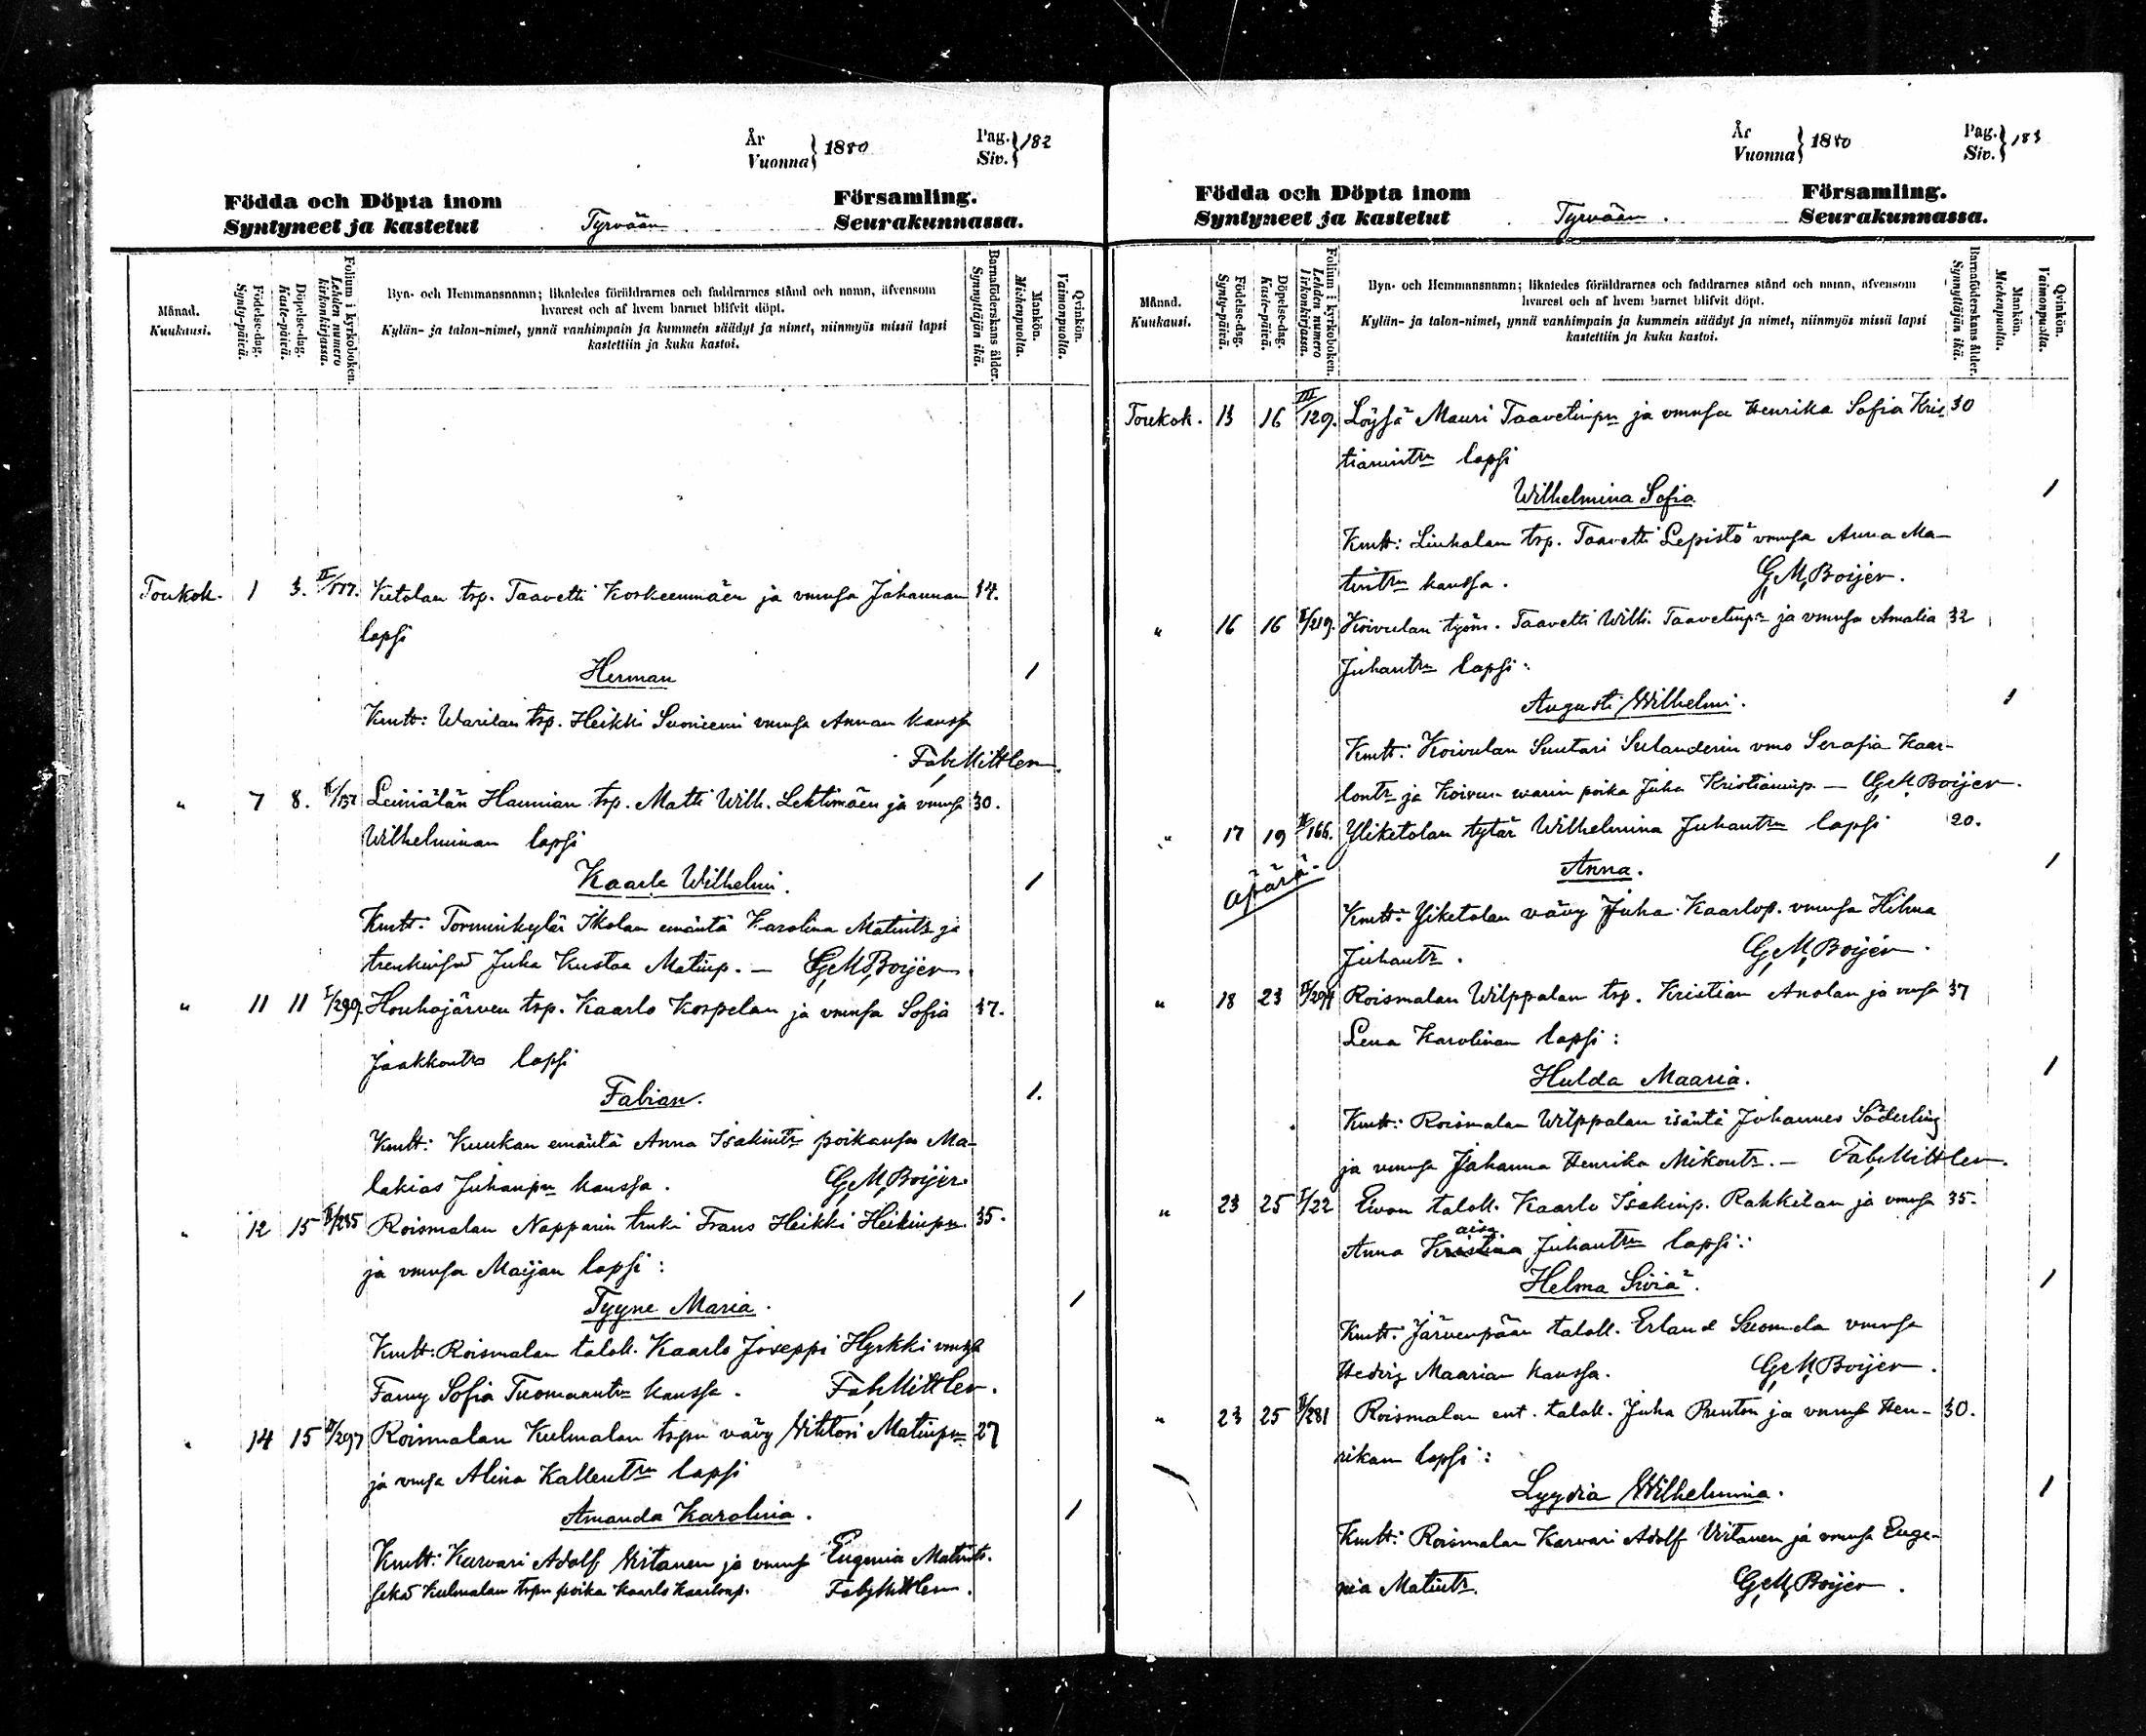 År
Vuonna } 1880
Pag.
Siv. } 182
Födda och Döpta inom Församling.
Syntyneet ja kastetut Tyrvään Seurakunnassa.
Månad.
Kuukausi.
Födelse-dag.
Synty-päivä.
Döpelse-dag.
Kaste-päivä.
Folium i kyrkoboken.
Lehden numero
kirkonkirjassa.
Byn- och Hemmansnamn; likaledes föräldrarnes och faddrarnes stånd och namn, äfvensom
hvarest och af hvem barnet blifvit döpt.
Kylän- ja talon-nimet, ynnä vanhimpain ja kummein säädyt ja nimet, niinmyös missä lapsi
kastettiin ja kuka kastoi.
Barnaföderskans ålder.
Synnyttäjän ikä.
Mankön.
Miehenpuolta.
Qvinkön.
Vaimonpuolta.
Toukok. 1 3. Ketolan tsp. Taavetti Koskeenmäen ja vmnsa Johannan 34.
lapsi
Herman 1
Kmtt: Warilan tsp. Heikki Suoniemi vmnsa Annan kanssa
Fab. Mittler.
" 7 8. Leiniälän Hannian tsp. Matti Wilh. Lehtimäen ja vmnsa 30.
Wilhelminan lapsi
Kaarle Wilhelmi. 1
Kmtt: Torminkylän Ikolan emäntä Karolina Matints ja
Juha Kustaa Matinp. — G. M. Boijer.
" 11 11 I/290. Houhajärven tsp. Kaarlo Korpelan ja vmnsa Sofia 37.
Jaakkontr lapsi
Fabian. 1.
Kmtt: Kuukan emäntä Anna Isakintr poikansa Ma-
lakias Juhanpn kanssa. G. M. Boijer.
" 12 15 II/285 Roismalan Napparin trnki Frans Heikki Heikinpn 35.
ja vmnsa Maijan lapsi:
Tyyne Maria. 1
Kmtt: Roismalan taloll. Kaarlo Joseppi Hyrkki vmnsa
Fanny Sofia Tuomaantr kanssa. Fab. Mittler.
" 14 15 II/297 Roismalan Kulmalan tspn vävy Wihtori Matinpn 27
ja vmnsa Alina Kallentrn lapsi
Amanda Karolina. 1
Kmtt: Karvari Adolf Wirtanen ja vmnsa Eugenia Matints.
sekä Kulmalan tspn poika Kaarlo Kaarlonp. Fab. Mittler.
År
Vuonna } 1880
Pag.
Siv. } 183
Födda och Döpta inom Församling.
Syntyneet ja kastetut Tyrvään. Seurakunnassa.
Månad.
Kuukausi.
Födelse-dag.
Synty-päivä.
Döpelse-dag.
Kaste-päivä.
Folium i kyrkoboken.
Lehden numero
kirkonkirjassa.
Byn- och Hemmansnamn; likaledes föräldrarnes och faddrarnes stånd och namn, äfvensom
hvarest och af hvem barnet blifvit döpt.
Kylän- ja talon-nimet, ynnä vanhimpain ja kummein säädyt ja nimet, niinmyös missä lapsi
kastettiin ja kuka kastoi.
Barnaföderskans ålder.
Synnyttäjän ikä.
Mankön.
Miehenpuolta.
Qvinkön.
Vaimonpuolta.
Toukok. 13 16 III/129. Löysä Mauri Taavetinpn ja vmnsa Henrika Sofia Kris 30
tianintrn lapsi
Wilhelmina Sofia 1
Kmtt: Liuhalan tsp. Taavetti Lepistö vmnsa Anna Ma-
tintrn kanssa. G. M. Boijer.
" 16 16 I/219. Koivulan työm. Taavetti Wilh. Taavetinpn ja vmnsa Amalia 32
Juhantrn lapsi:
Augusti Wilhelmi. 1
Kmtt: Koivulan Suutari Sulanderin vmo Serafia Kaar-
lontr ja Koivun waarin poika Juha Kristianinp. — G. M. Boijer.
" 17 19 II/166. Yliketolan tytär Wilhelmina Juhantrn lapsi 20.
äpärä. Anna. 1
Kmtt: Yliketolan vävy Juha Kaarlop. vmnsa Hilma
Juhantr. G. M. Boijer.
" 18 23 Roismalan Wilppalan tsp. Kristian Anolan ja vmsa 37
Lena Karolinan lapsi:
Hulda Maaria. 1
Kmtt: Roismalan Wilppalan isäntä Johannes Söderling
ja vmnsa Johanna Henrika Mikontr. — Fab. Mittler.
" 23 25 I/22 Ewon taloll. Kaarlo Isakinp. Rakkilan ja vmnsa 35.
Anna Kristina Juhantrn lapsi:
Helma Siviä. 1
Kmtt: Järvenpään taloll. Erland Suomela vmnsa
Hedvig Maarian kanssa. G. M. Boijer.
" 23 25 II/281 Roismalan ent. taloll. Juha Pentin ja vmnsa Hen- 30.
rikan lapsi:
Lyydia Wilhelmina. 1
Kmtt: Roismalan Karvari Adolf Virtanen ja vmnsa Euge-
nia Matintr. G. M. Boijer.